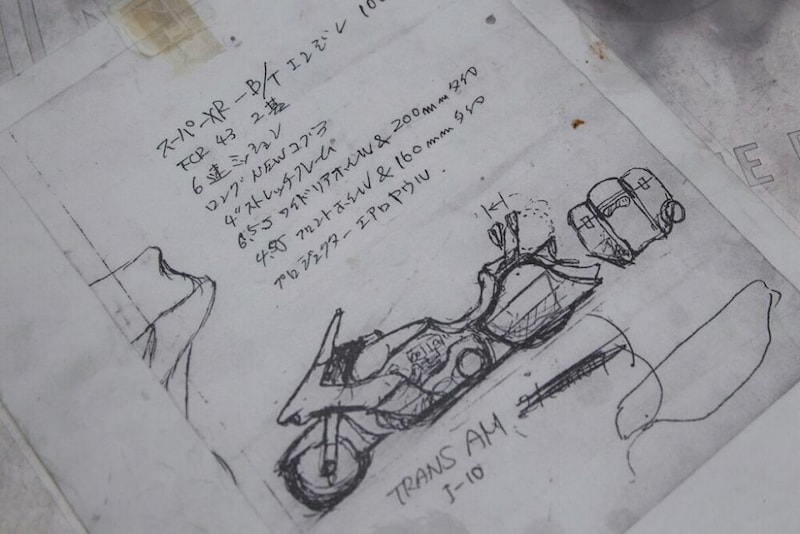 スーパーXR-B/T エンジン 100
FCR 43 2基
6速ミッション
ロングNEWコブラ
4"ストレッチフレーム
6.5J ワイドリアホイル & 200mmタイヤ
4.5J フロントホイル & 160mmタイヤ
プロジェクターエアロカウル.
TRANS AM
J-10